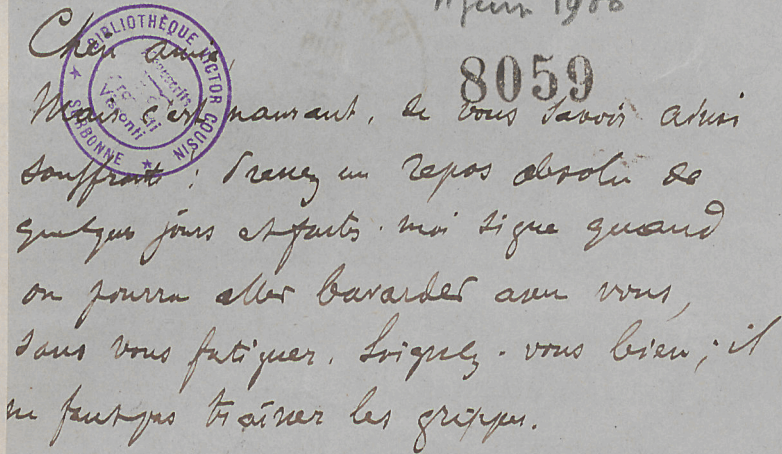 juin 1906
8059
BIBLIOTHÈQUE VICTOR COUSIN
SORBONNE
Visconti
Cher ami,
Mais c'est navrant, de vous savoir ainsi
souffrant ; Prenez un repos absolu de
quelques jours et faites-moi signe quand
on pourra aller bavarder avec vous,
sans vous fatiguer. Soignez-vous bien ; il
ne faut pas traîner les grippes.